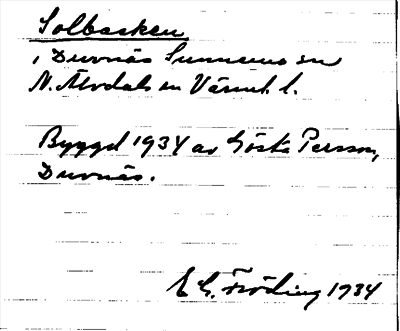 Solbacken
i Duvnäs Sunnemo sn
N. Älvdals hd Värml. l.
Byggd 1934 av Gösta Persson,
Duvnäs.
E G. Fröding 1934